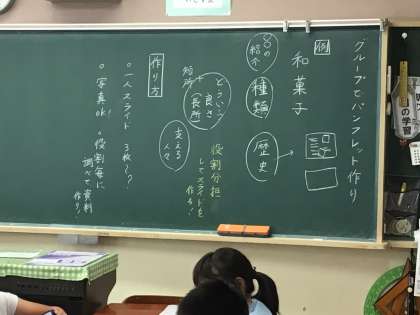 グループでパンフレット作り
例
和菓子
もの
紹介
種類
歴史
どういう
良さ
(長所)
+
短所
支える
人々
役割分担
してスライドを
作る！
作り方
。一人スライド 3枚〜?
。写真ok!
。役割毎に
調べて資料
作り!
の学習